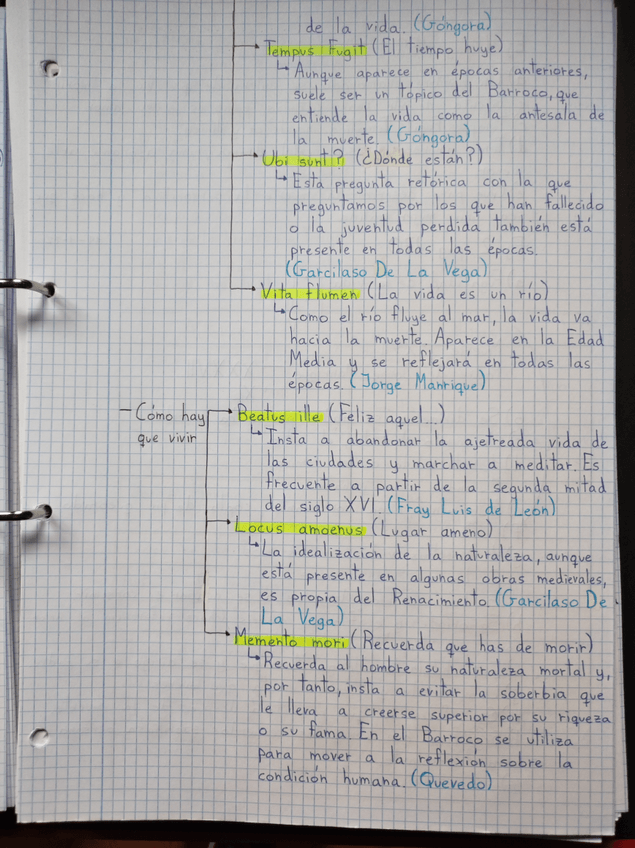 de la vida. (Góngora)
Tempus Fugit (El tiempo huye)
Aunque aparece en épocas anteriores,
suele ser un tópico del Barroco, que
entiende la vida como la antesala de
la muerte. (Góngora)
Ubi sunt? (¿Dónde están?)
Esta pregunta retórica con la que
preguntamos por los que han fallecido
o la juventud perdida también está
presente en todas las épocas.
(Garcilaso De La Vega)
Vita flumen (La vida es un río)
Como el río fluye al mar, la vida va
hacia la muerte. Aparece en la Edad
Media y se reflejará en todas las
épocas. (Jorge Manrique)
- Cómo hay
que vivir
Beatus ille (Feliz aquel...)
Insta a abandonar la ajetreada vida de
las ciudades y marchar a meditar. Es
frecuente a partir de la segunda mitad
del siglo XVI. (Fray Luis de León)
Locus amoenus (Lugar ameno)
La idealización de la naturaleza, aunque
está presente en algunas obras medievales,
es propia del Renacimiento. (Garcilaso De
La Vega)
Memento mori (Recuerda que has de morir)
Recuerda al hombre su naturaleza mortal y,
por tanto, insta a evitar la soberbia que
le lleva a creerse superior por su riqueza
o su fama. En el Barroco se utiliza
para mover a la reflexión sobre la
condición humana. (Quevedo)